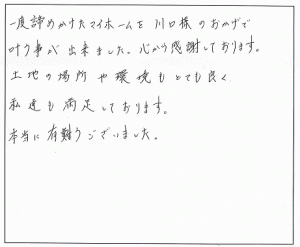 一度諦めかけたマイホームを川口様のおかげで
叶う事が出来ました。心から感謝しております。
土地の場所や環境もとても良く
私達も満足しております。
本当に有難うございました。